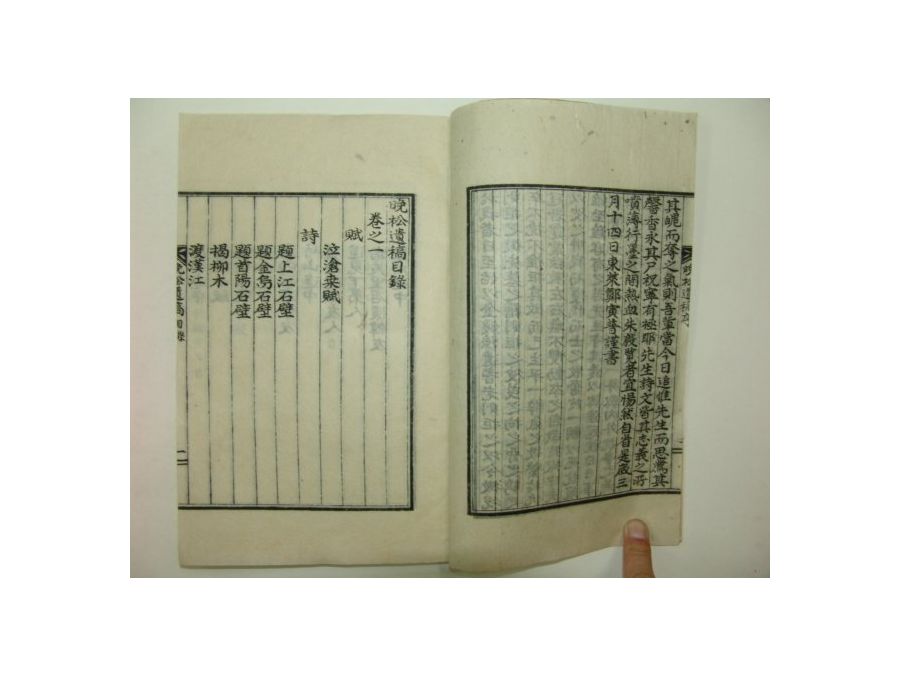 晩松遺稿序
其嵬而奪之氣則吾輩當今日追惟先生而思爲其
馨香永其尸祝寧有極耶先生詩文皆其志義之所
噴薄行墨之間熱血朱殷覽者宜惕然自省是歲三
月十四日東萊鄭寅普謹書
晩松遺稿目錄
卷之一
賦
泣滄桑賦
詩
題上江石壁
題金烏石壁
題首陽石壁
楊柳木
渡漢江
晩松遺稿 目錄
一